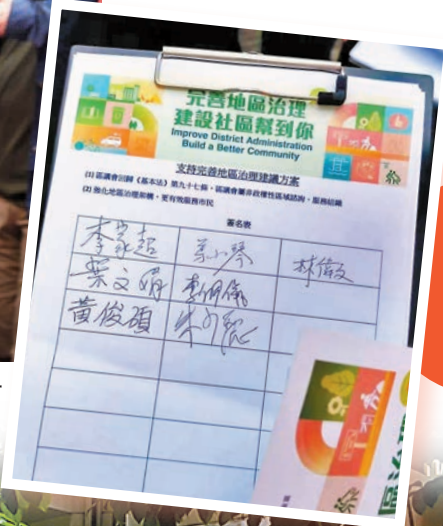 完善地區治理
建設社區幫到你
Improve District Administration
Build a Better Community
支持完善地區治理建議方案
(1) 區議會回歸《基本法》第九十七條，區議會屬非政權性區域諮詢、服務組織
(2) 強化地區治理架構，更有效服務市民
簽名表
李家超 林偉
葉文娟 李佩儀
黃俊碩